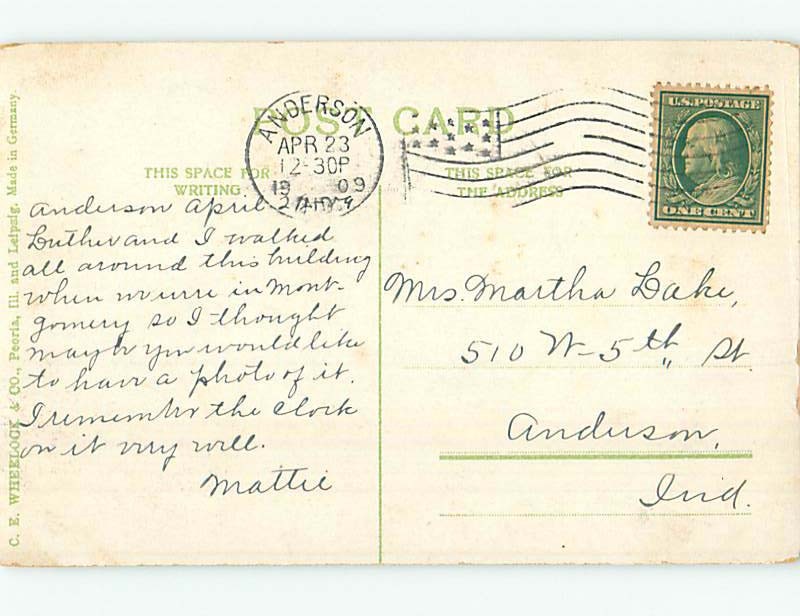 POST CARD
ANDERSON
APR 23
12-30P
1909
IND.
U.S. POSTAGE
ONE CENT
THIS SPACE FOR
WRITING
THIS SPACE FOR
THE ADDRESS
Anderson April
Luther and I walked
all around this building
when we were in Mont-
gomery so I thought
maybe you would like
to have a photo of it.
I remember the clock
on it very well.
Mattie
Mrs. Martha Lake,
510 W- 5th St
Anderson,
Ind.
C. E. WHEELOCK & CO., Peoria, Ill. and Leipzig. Made in Germany.